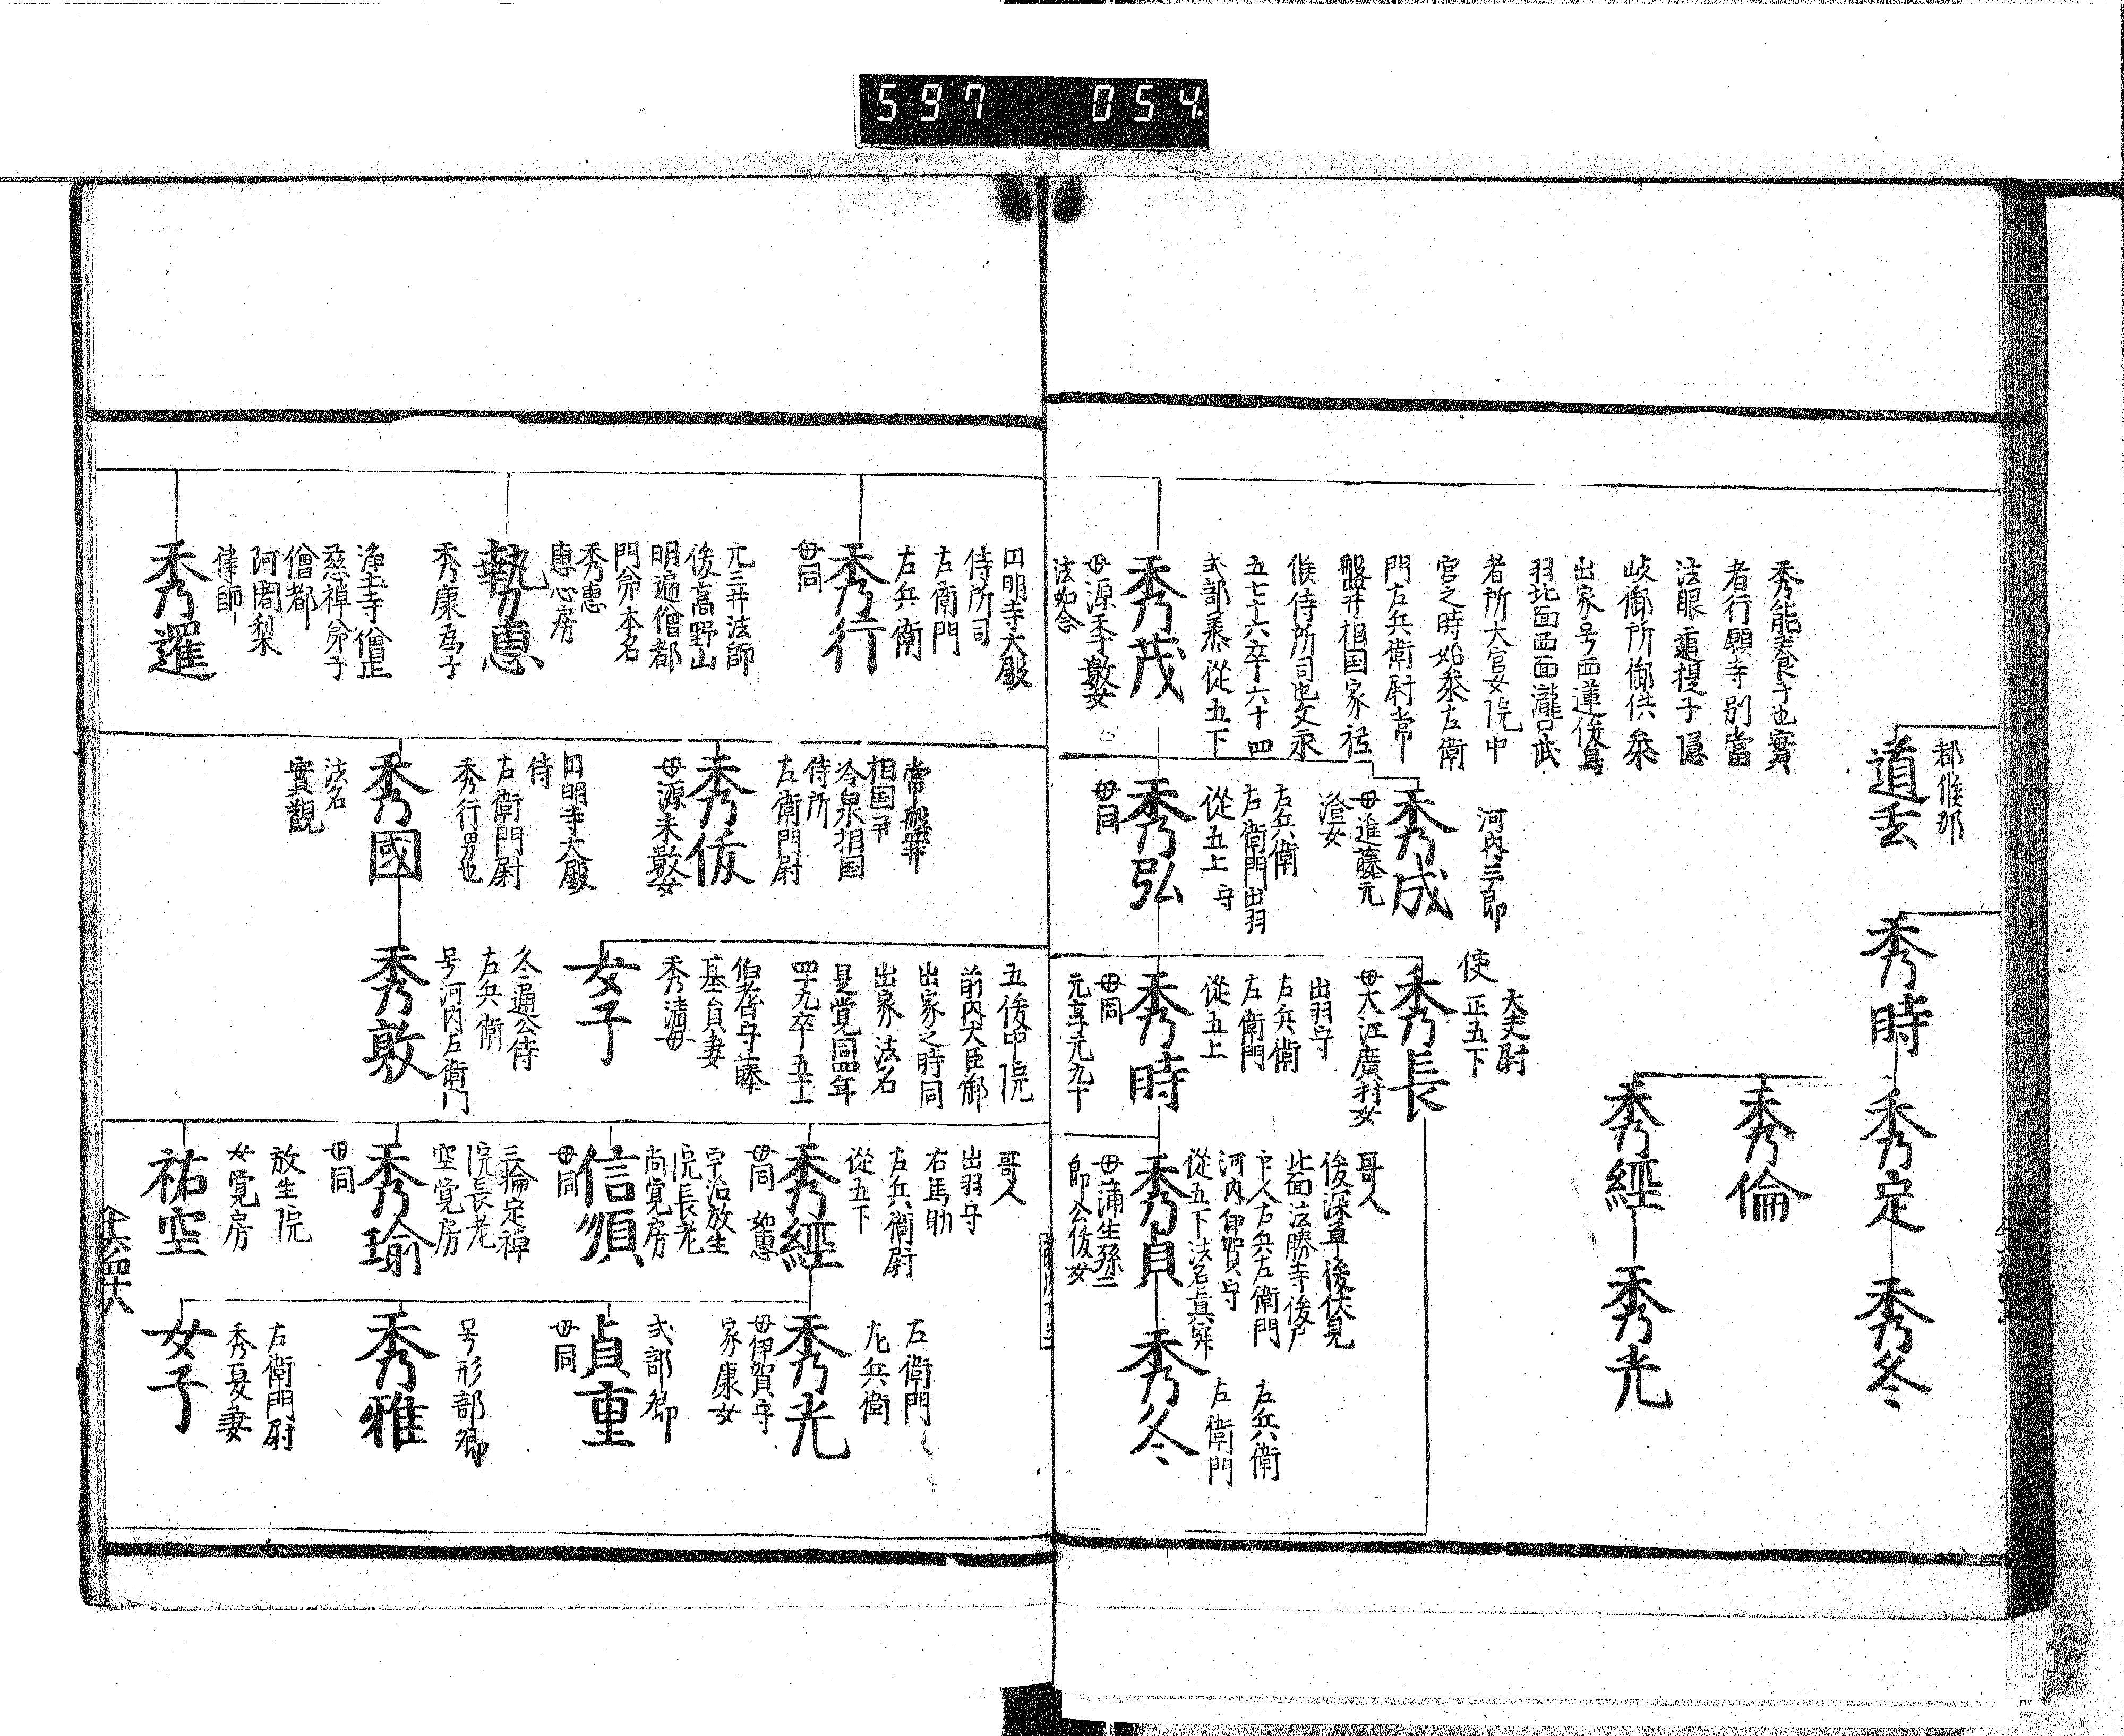 597 054.
都維那
道玄
秀時
秀定
秀冬
秀倫
秀經
秀光
秀能養子也實
者行願寺別當
法眼道提子隱
岐御所御供參
出家号西蓮後鳥
羽北面西面瀧口武
者所大宮女院中
宮之時始參左衛
門左兵衛尉常
盤井相国家祗
候侍所司也文永
五七十六卒六十四
式部丞從五下
秀茂
母源季數女
法如念
河内三郎
秀成
母進藤元
澄女
左兵衛
右衛門出羽
從五上 守
秀弘
母同
大夫尉
使 正五下
秀長
母大江廣村女
出羽守
右兵衛
左衛門
從五上
秀時
母同
元享元九十
哥人
後深草後伏見
北面法勝寺後戸
下人右兵左衛門
河内伊賀守
從五下法名真寂
秀貞
母蒲生孫二
郎公俊女
左兵衛
左衛門
秀冬
円明寺大殿
侍所司
左衛門
右兵衛
秀行
母同
元三井法師
後高野山
明遍僧都
門弟本名
秀惠
惠心房
執惠
秀康為子
浄土寺僧正
慈禅弟子
僧都
阿闍梨
律師
秀暹
常盤井
相国
冷泉相国
侍所
左衛門尉
秀依
母源末數女
円明寺大殿
侍
右衛門尉
秀行男也
秀國
法名
實觀
五後中院
前内大臣御
出家之時同
出家法名
是覚同四年
四十九卒五十一
伯耆守藤
基員妻
秀清母
女子
久通公侍
左兵衛
号河内左衛門
秀敦
哥人
出羽守
右馬助
左兵衛尉
從五下
秀經
母同 如惠
宇治放生
院長老
尚覚房
信順
母同
三輪定禅
院長老
空覚房
秀瑜
母同
放生院
女覚房
祐空
右衛門
左兵衛
秀光
母伊賀守
家康女
式部卿
貞重
母同
号形部卿
秀雅
右衛門尉
秀夏妻
女子
十六 四十八